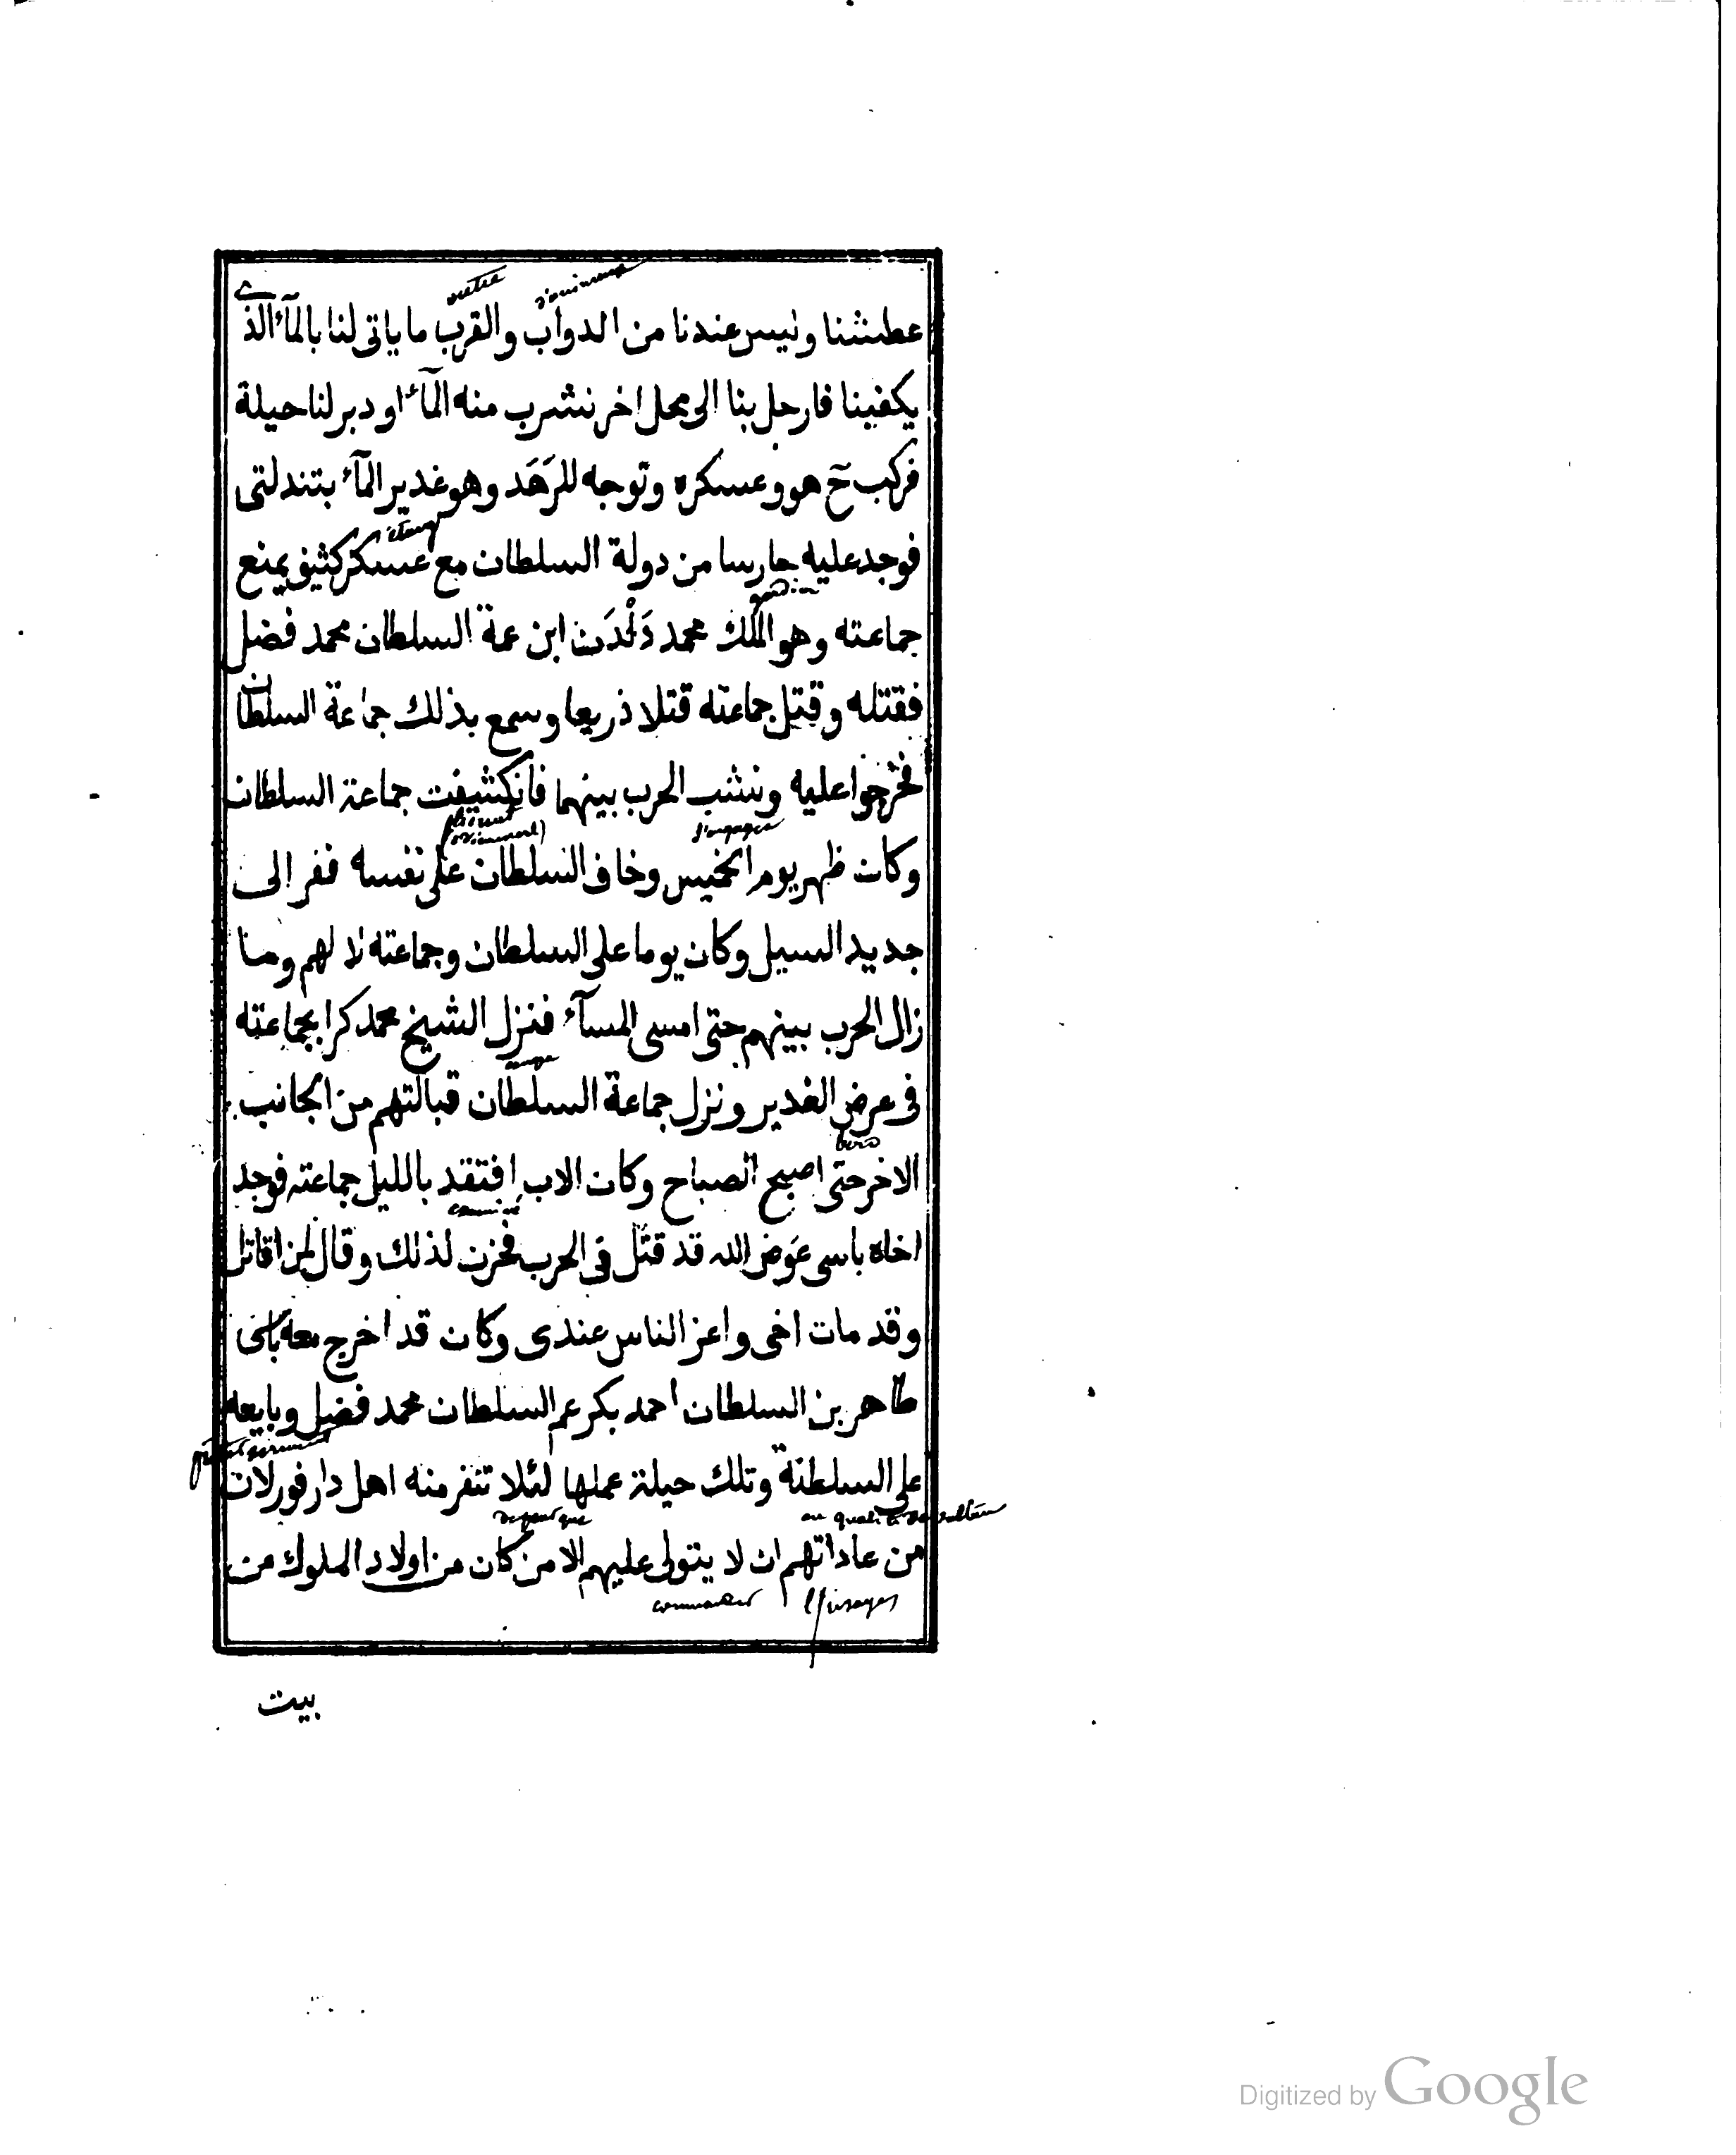 عطشنا وليس عندنا من الدواب والقرب ما ياتى لنا بالمآء الذى
يكفينا فارحل بنا الى محل اخر نشرب منه المآء او دبر لنا حيلة
فركب ح هو وعسكره وتوجه للرَهَد وهو غدير المآء بتندلتى
فوجد عليه حارسا من دولة السلطان مع عسكر كثيف يمنع
جماعته وهو الملك محمد دَلْدَن ابن عمة السلطان محمد فضل
فقتله وقتل جماعته قتلا ذريعا وسمع بذلك جماعة السلطان
فخرجوا عليه ونشب الحرب بينهما فانكشفت جماعة السلطان
وكان ظهر يوم الخميس وخاف السلطان على نفسه ففر الى
جديد السيل وكان يوما على السلطان وجماعته لا لهم وما
زال الحرب بينهم حتى امسى المسآء فنزل الشيخ محمد كرا بجماعته
فى عرض الغدير ونزل جماعة السلطان قبالتهم من الجانب
الاخر حتى اصبح الصباح وكان الاب افتقد بالليل جماعته فوجد
اخاه باسى عَوَض الله قد قتل فى الحرب فحزن لذلك وقال لمن اقاتل
وقد مات اخى واعز الناس عندى وكان قد اخرج معه باسى
طاهر بن السلطان احمد بكر عم السلطان محمد فضل وبايعه
على السلطنة وتلك حيلة عملها لئلا تنفر منه اهل دارفور لان
من عاداتهم ان لا يتولى عليهم الا من كان من اولاد الملوك من
بيت
Digitized by Google